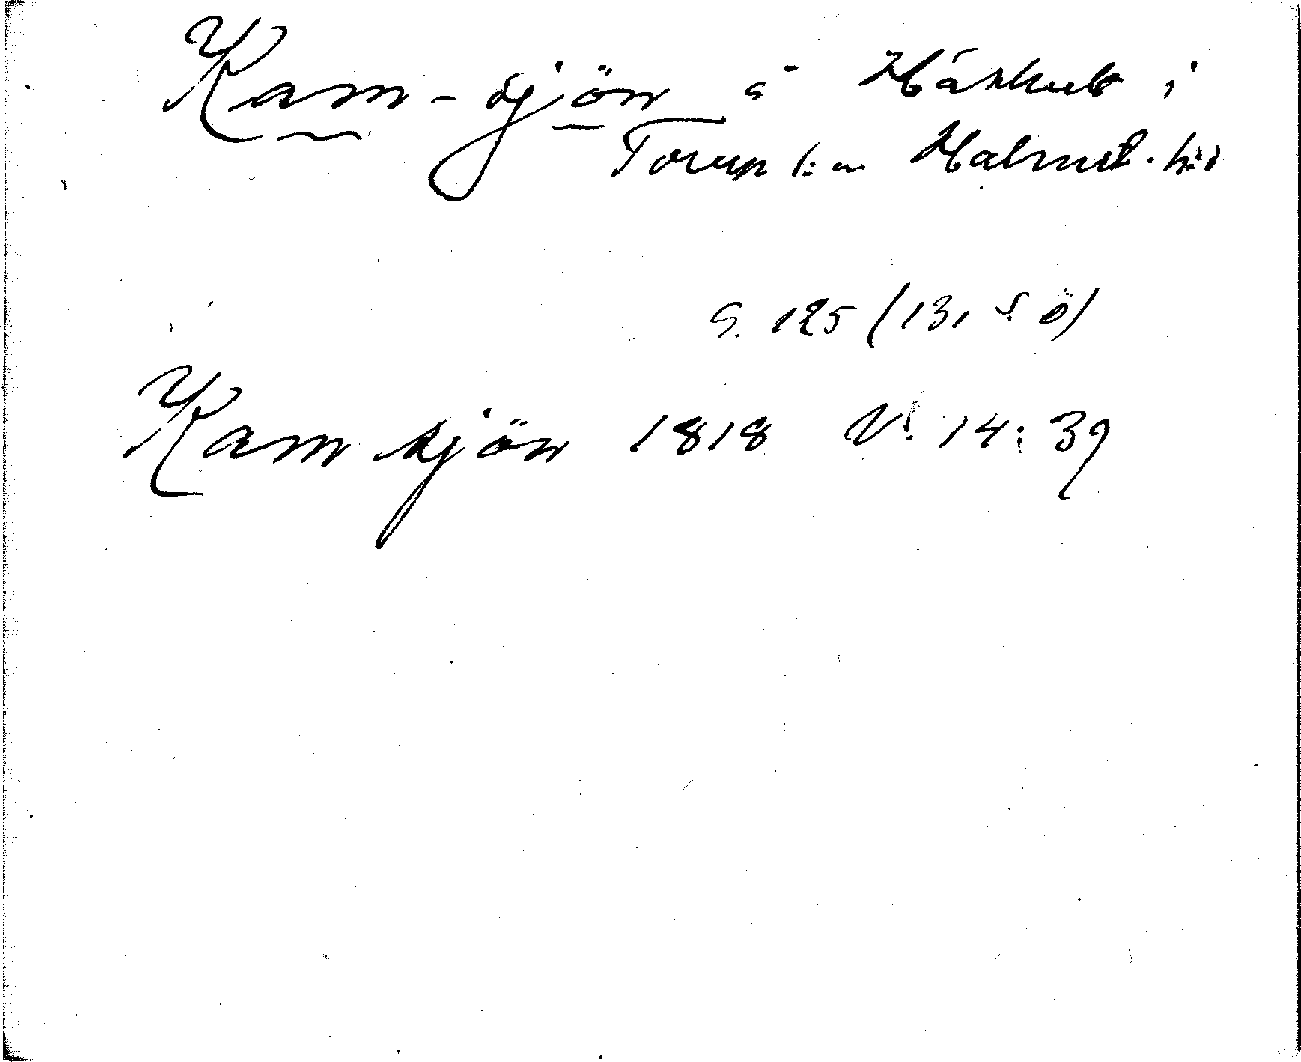 Kam-sjön s Hårkult i
Torup s:n Halmst. hd
G. 125 (13, S. Ö)
Kamsjön 1818 V. 14:39